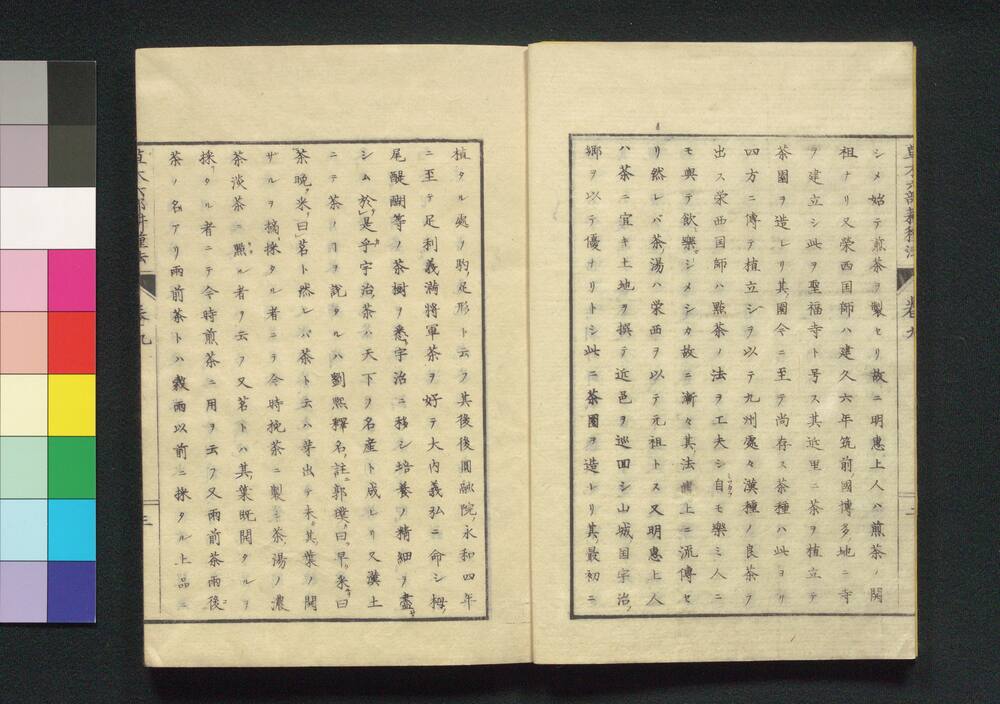 シメ始テ煎茶ヲ製セリ故ニ明惠上人ハ煎茶ノ開
祖ナリ又榮西国師ハ建久六年筑前國博多ノ地ニ寺
ヲ建立シ此ヲ聖福寺ト号ス其近里ニ茶ヲ植立テ
茶園ヲ造レリ其園今ニ至テ尚存ス茶種ハ此ヨリ
四方ニ傳テ植立シヲ以テ九州處々漢種ノ良茶ヲ
出ス栄西国師ハ點茶ノ法ヲ工夫シ自モ樂ミ人ニ
モ與テ飲樂シメシカ故ニ漸々其法世上ニ流傳セ
リ然レバ茶湯ハ栄西ヲ以テ元祖トス又明惠上人
ハ茶ニ宜キ土地ヲ撰テ近邑ヲ巡回シ山城国宇治ノ
郷ヲ以テ優ナリトシ此ニ茶園ヲ造レリ其最初ニ
植タル處ノ駒ノ足形ト云フ其後後圓融院ノ永和四年
ニ至テ足利義満將軍茶ヲ好テ大内義弘ニ命シ栂ノ
尾醍醐等ノ茶樹ヲ悉ク宇治ニ移シ培養ノ精細ヲ盡サ
シム於是乎宇治ノ茶ハ天下ノ名産ト成レリ又漢土
ニテ茶ノヿヲ説タルハ劉熙釋名ノ註ニ郭璞ノ曰早ク采ヲ曰
茶晩ク采ヲ曰茗ト然レバ茶ト云ハ芽出テ未其葉ノ開
サルヲ摘採タル者ニテ今時挽茶ニ製シ茶ノ湯ノ濃
茶淡茶ニ點ル者ヲ云フ又茗トハ其葉既開タルヲ
採タル者ニテ今時煎茶ニ用ヲ云フ又雨前茶雨後
茶ノ名アリ雨前茶トハ穀雨以前ニ採タル上品ニ